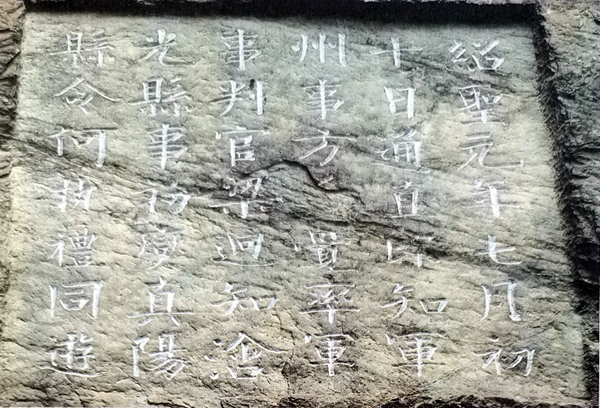 紹聖元年七月初
十日通直郎知軍
州事方覺率軍
事判官梁迥知浛
光縣事燮真陽
縣令何執禮同遊